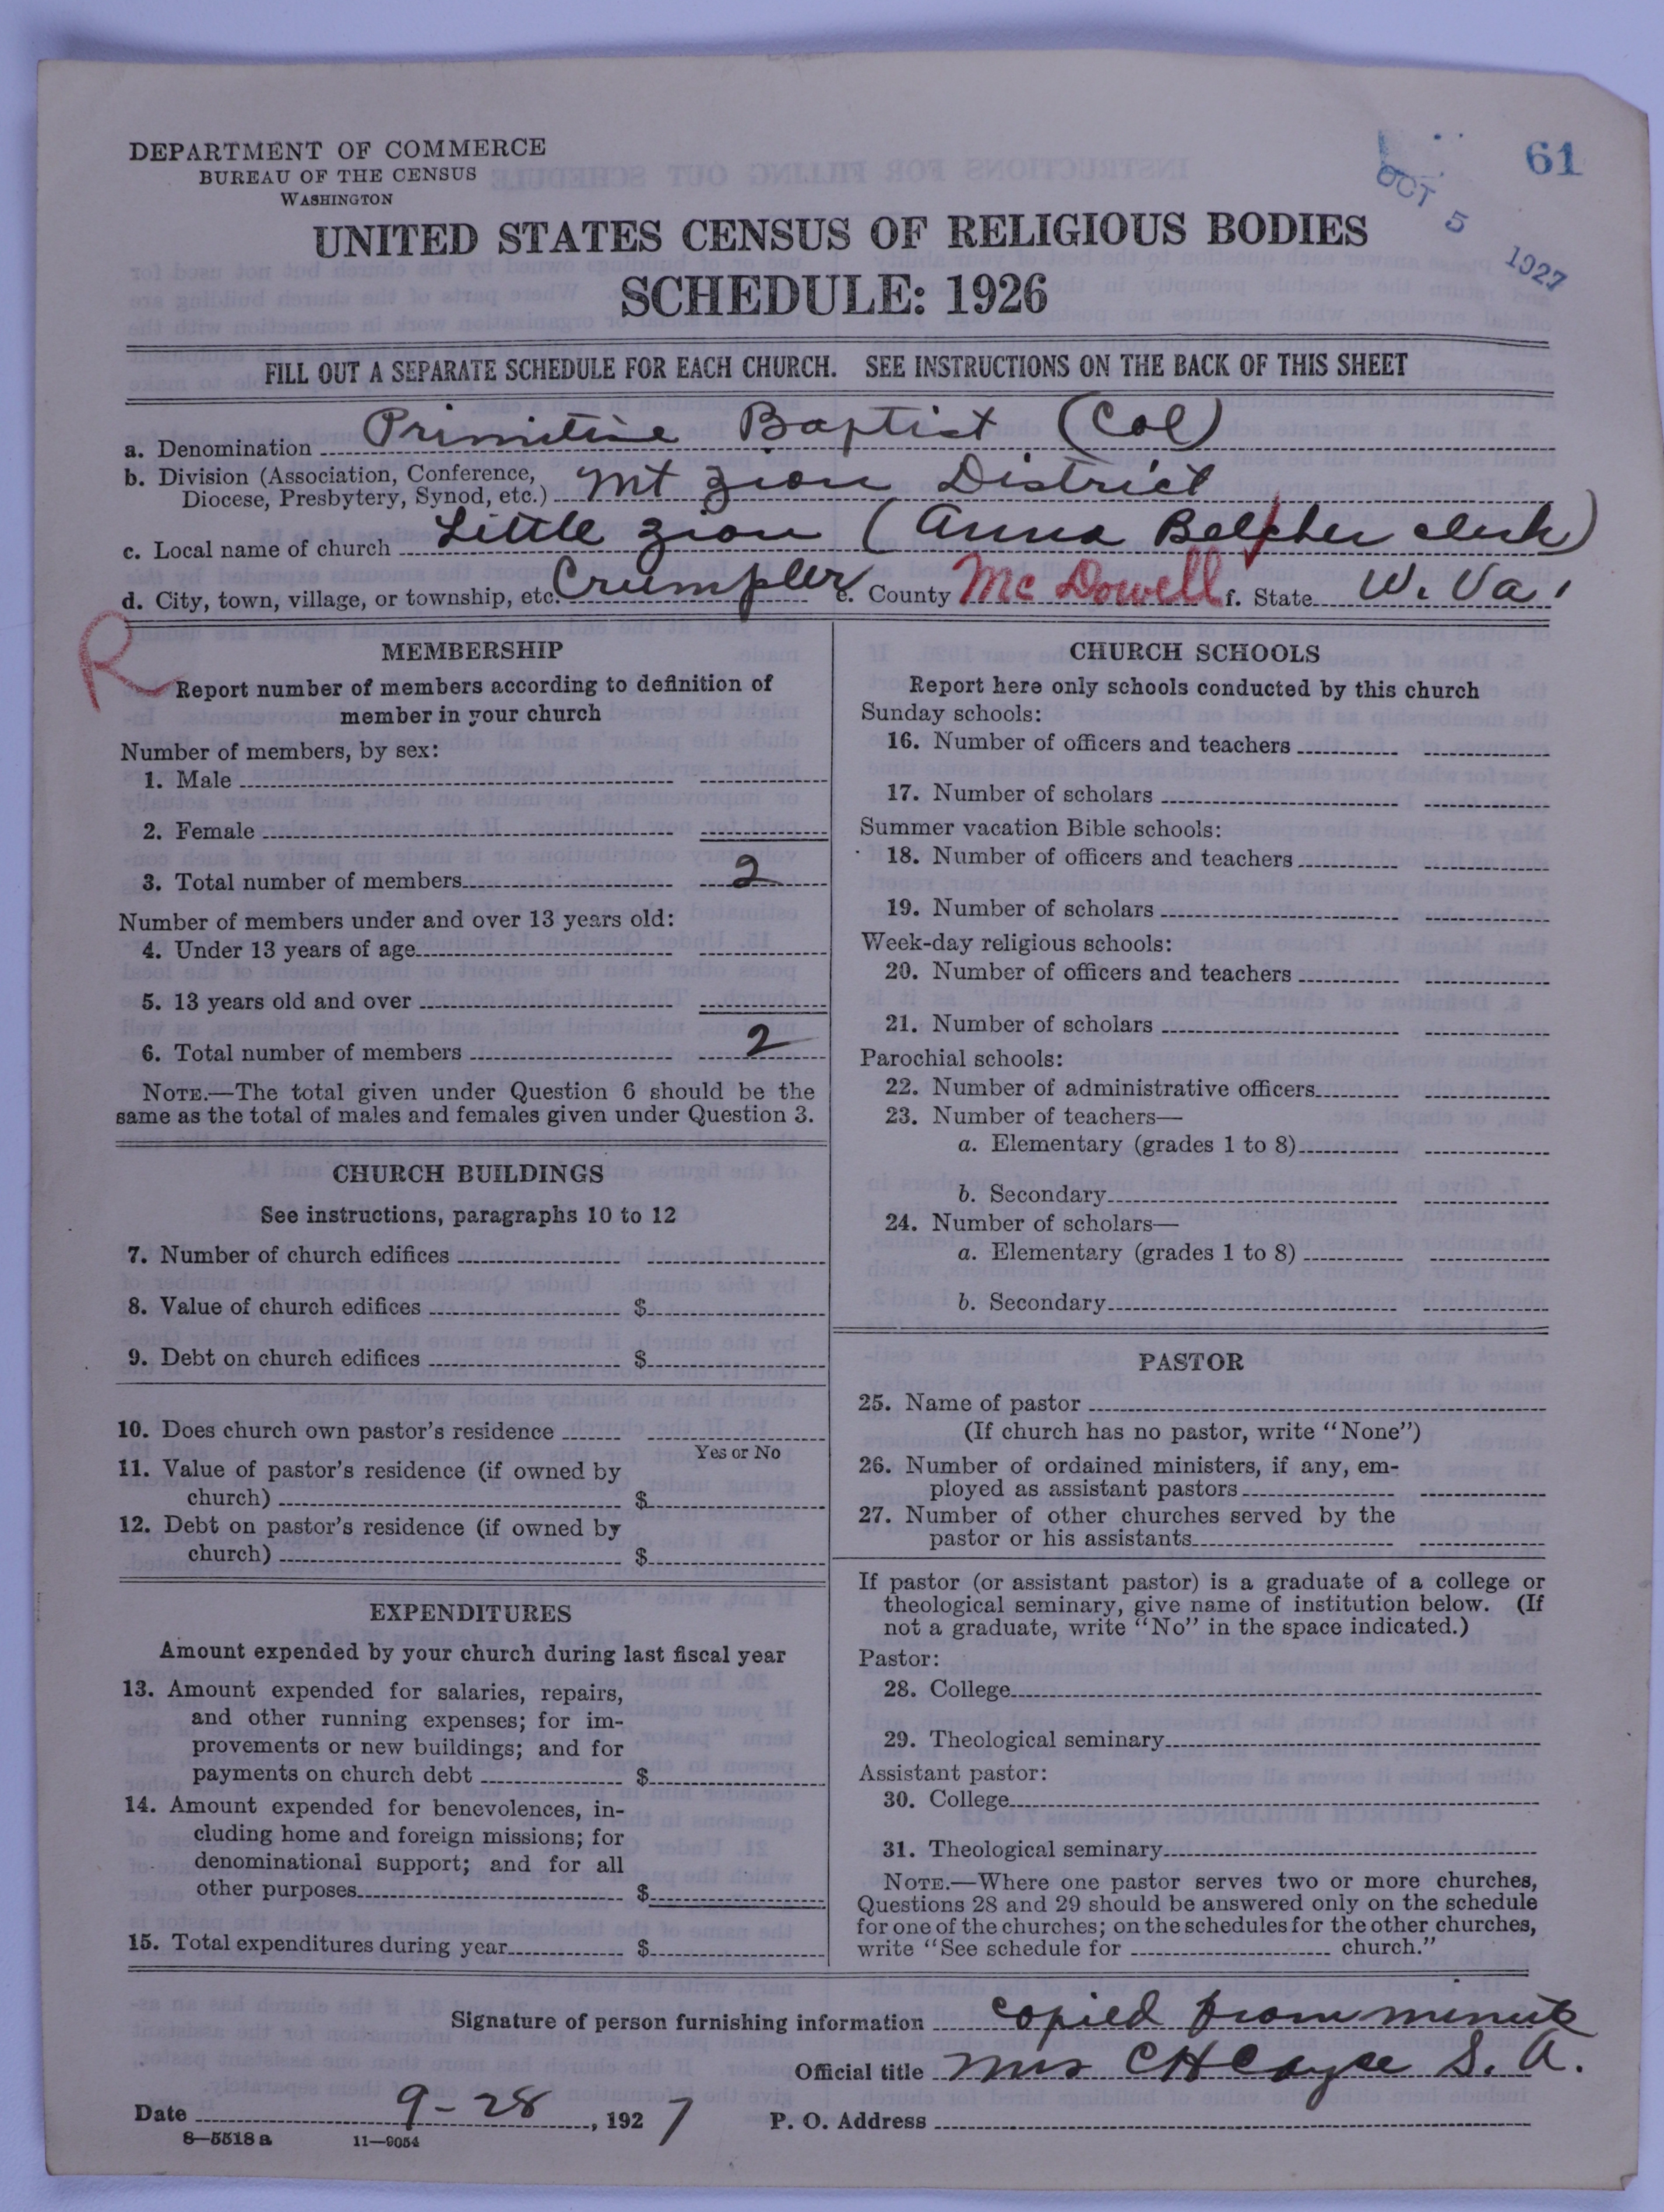 DEPARTMENT OF COMMERCE
BUREAU OF THE CENSUS
WASHINGTON
61
OCT 5 1927
UNITED STATES CENSUS OF RELIGIOUS BODIES
SCHEDULE: 1926
FILL OUT A SEPARATE SCHEDULE FOR EACH CHURCH. SEE INSTRUCTIONS ON THE BACK OF THIS SHEET
a. Denomination Primitive Baptist (Col)
b. Division (Association, Conference, Diocese, Presbytery, Synod, etc.) Mt Zion District
c. Local name of church Little Zion (Anna Belcher clerk)
d. City, town, village, or township, etc. Crumpler e. County McDowell f. State W. Va.
R
MEMBERSHIP
Report number of members according to definition of
member in your church
Number of members, by sex:
1. Male
2. Female
3. Total number of members 2
Number of members under and over 13 years old:
4. Under 13 years of age
5. 13 years old and over
6. Total number of members 2
NOTE.—The total given under Question 6 should be the
same as the total of males and females given under Question 3.
CHURCH BUILDINGS
See instructions, paragraphs 10 to 12
7. Number of church edifices
8. Value of church edifices $
9. Debt on church edifices $
10. Does church own pastor's residence
Yes or No
11. Value of pastor's residence (if owned by
church) $
12. Debt on pastor's residence (if owned by
church) $
EXPENDITURES
Amount expended by your church during last fiscal year
13. Amount expended for salaries, repairs,
and other running expenses; for im-
provements or new buildings; and for
payments on church debt $
14. Amount expended for benevolences, in-
cluding home and foreign missions; for
denominational support; and for all
other purposes $
15. Total expenditures during year $
CHURCH SCHOOLS
Report here only schools conducted by this church
Sunday schools:
16. Number of officers and teachers
17. Number of scholars
Summer vacation Bible schools:
18. Number of officers and teachers
19. Number of scholars
Week-day religious schools:
20. Number of officers and teachers
21. Number of scholars
Parochial schools:
22. Number of administrative officers
23. Number of teachers—
a. Elementary (grades 1 to 8)
b. Secondary
24. Number of scholars—
a. Elementary (grades 1 to 8)
b. Secondary
PASTOR
25. Name of pastor
(If church has no pastor, write "None")
26. Number of ordained ministers, if any, em-
ployed as assistant pastors
27. Number of other churches served by the
pastor or his assistants
If pastor (or assistant pastor) is a graduate of a college or
theological seminary, give name of institution below. (If
not a graduate, write "No" in the space indicated.)
Pastor:
28. College
29. Theological seminary
Assistant pastor:
30. College
31. Theological seminary
NOTE.—Where one pastor serves two or more churches,
Questions 28 and 29 should be answered only on the schedule
for one of the churches; on the schedules for the other churches,
write "See schedule for church."
Signature of person furnishing information copied from minute
Official title Mrs C H Cayce S. A.
Date 9-28, 1927 P. O. Address
8—5518 a 11—9054